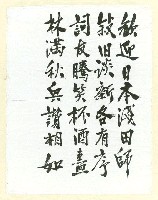 歓迎日本濱田師
敍旧談新各有序
詞良騰笑杯酒盡
林滿秋兵讚相如